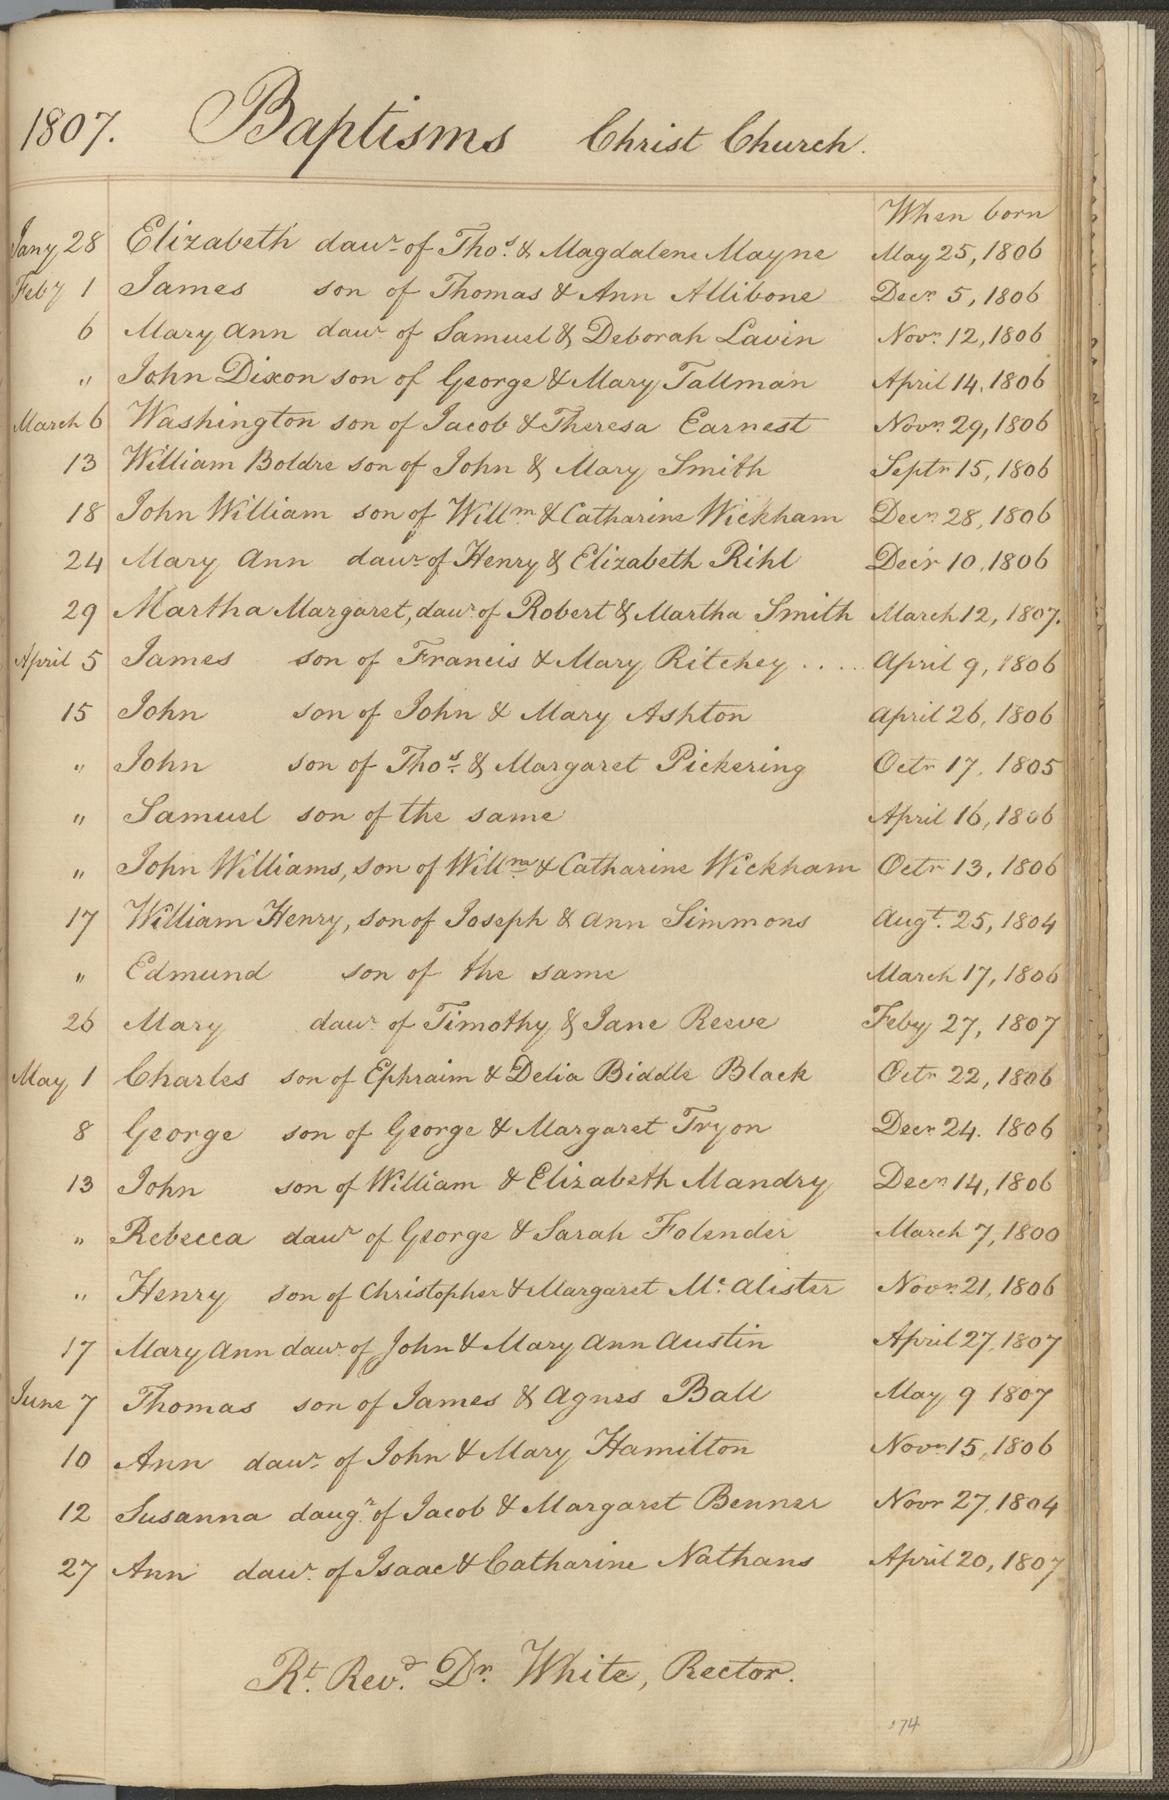 1807. Baptisms Christ Church.
When born
Jany 28 Elizabeth dawr of Thos. & Magdalene Mayne May 25, 1806
Feby 1 James son of Thomas & Ann Allibone Decr. 5, 1806
6 Mary Ann dawr. of Samuel & Deborah Lavin Novr. 12, 1806
" John Dixon son of George & Mary Tallman April 14, 1806
March 6 Washington son of Jacob & Theresa Earnest Novr. 29, 1806
13 William Boldre son of John & Mary Smith Septr 15, 1806
18 John William son of Willm & Catharine Wickham Decr. 28, 1806
24 Mary Ann dawr. of Henry & Elizabeth Rihl Decr 10, 1806
29 Martha Margaret, dawr. of Robert & Martha Smith March 12, 1807.
April 5 James son of Francis & Mary Ritchey ..... April 9, 1806
15 John son of John & Mary Ashton April 26, 1806
" John son of Thos. & Margaret Pickering Octr 17, 1805
" Samuel son of the same April 16, 1806
" John Williams, son of Willm. & Catharine Wickham Octr 13, 1806
17 William Henry, son of Joseph & Ann Simmons Augt. 25, 1804
" Edmund son of the same March 17, 1806
26 Mary dawr of Timothy & Jane Reeve Feby 27, 1807
May 1 Charles son of Ephraim & Delia Biddle Black Octr 22, 1806
8 George son of George & Margaret Tryon Decr 24. 1806
13 John son of William & Elizabeth Mandry Decr. 14, 1806
" Rebecca dawr of George & Sarah Folender March 7, 1800
" Henry son of Christopher & Margaret Mc. Alister Novr. 21, 1806
17 Mary Ann dawr. of John & Mary Ann Austin April 27, 1807
June 7 Thomas son of James & Agnes Ball May 9 1807
10 Ann dawr. of John & Mary Hamilton Novr. 15, 1806
12 Susanna daugr. of Jacob & Margaret Benner Novr 27, 1804
27 Ann dawr. of Isaac & Catharine Nathans April 20, 1807
Rt. Revd. Dr. White, Rector.
174